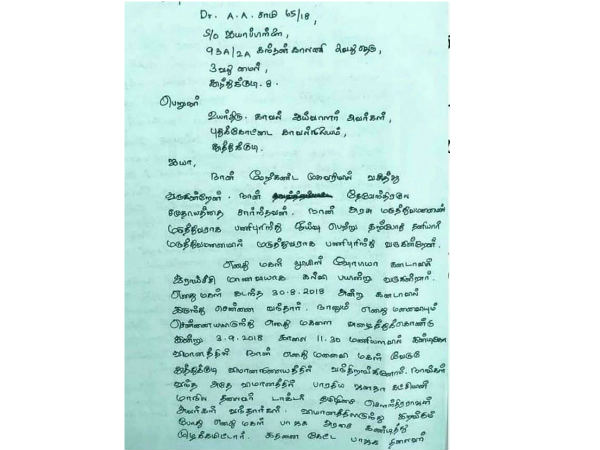 Dr. A.A. சாமி 65/18,
S/o ஐயாபிள்ளை,
93A/2A கந்தன் காலணி 2வது தெரு,
3 வது மைல்,
தூத்துக்குடி - 8.
பெறுநர்
உயர்திரு. காவல் ஆய்வாளர் அவர்கள்,
புதுக்கோட்டை காவல்நிலையம்,
தூத்துக்குடி.
ஐயா,
நான் மேற்கண்ட முகவரியில் வசித்து
வருகின்றேன். நான் தேவேந்திரகுல
சமுதாயத்தை சார்ந்தவன். நான் அரசு மருத்துவமனை
மருத்துவராக பணிபுரிந்து ஓய்வு பெற்று தற்போது தனியார்
மருத்துவமனையில் மருத்துவராக பணிபுரிந்து வருகின்றேன்.
எனது மகள் லூயிஸ் ஷோபியா கனடாவில்
ஆராய்ச்சி மாணவியாக கல்வி பயின்று வருகிறார்.
எனது மகள் கடந்த 30-8-2018 அன்று கனடாவில்
இருந்து சென்னை வந்தார். நானும் எனது மனைவியும்
சென்னையிலிருந்து எனது மகளை அழைத்துக்கொண்டு
இன்று 3.9.2018 காலை 11.30 மணியளவில் இண்டிகோ
விமானத்தில் நான் எனது மனைவி மகள் மேற்படி
தூத்துக்குடி விமானநிலையத்தில் வந்திறங்கினோம். நாங்கள்
வந்த அதே விமானத்தில் பாரதிய ஜனதா கட்சியின்
மாநில தலைவர் டாக்டர் தமிழிசை சௌந்திரராஜன்
அவர்கள் வந்தார்கள். விமானத்திலிருந்து இறங்கும்
போது எனது மகள் பாஜக அரசை கண்டித்து
முழக்கமிட்டார். இதனை கேட்ட பாஜக தலைவர்